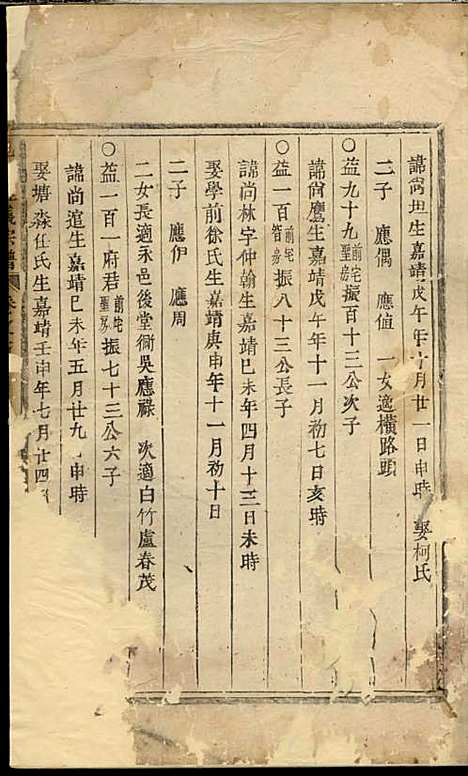 諱尚坦生嘉靖戊午年十月廿一日申時 娶柯氏
二子 應偶 應値 一女適橫路頭
○益九十九前宅聖房振百十三公次子
諱尚鷹生嘉靖戊午年十一月初七日亥時
○益一百前宅智房振八十三公長子
諱尚林字仲翰生嘉靖巳未年四月十三日未時
娶學前徐氏生嘉靖庚申年十一月初十日
二子 應伊 應周
二女長適永邑後堂衕吳應祿 次適白竹盧春茂
○益一百一府君前宅聖房振七十三公六子
諱尚 生嘉靖巳未年五月廿九 申時
娶塘 任氏生嘉靖壬申年七月廿四
宗譜